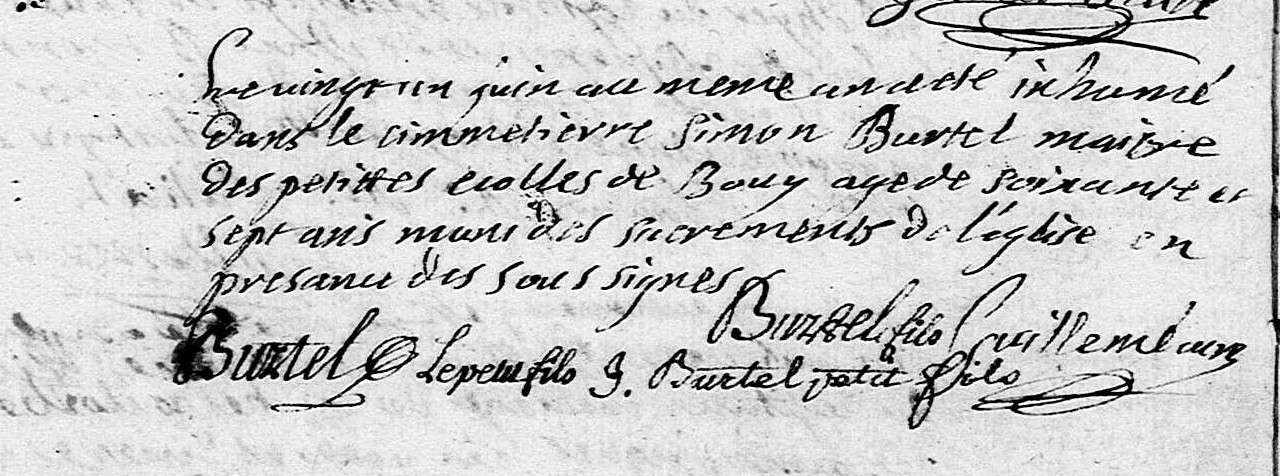 Le vingt un juin au meme an a eté inhumé
dans le cimmetierre Simon Burtel maitre
des petittes ecolles de Bouy agé de soixante et
sept ans muni des sacrements de l'église en
presance des sous signes
Burtel fils
Burtel Le petit fils J. Burtel petit fils